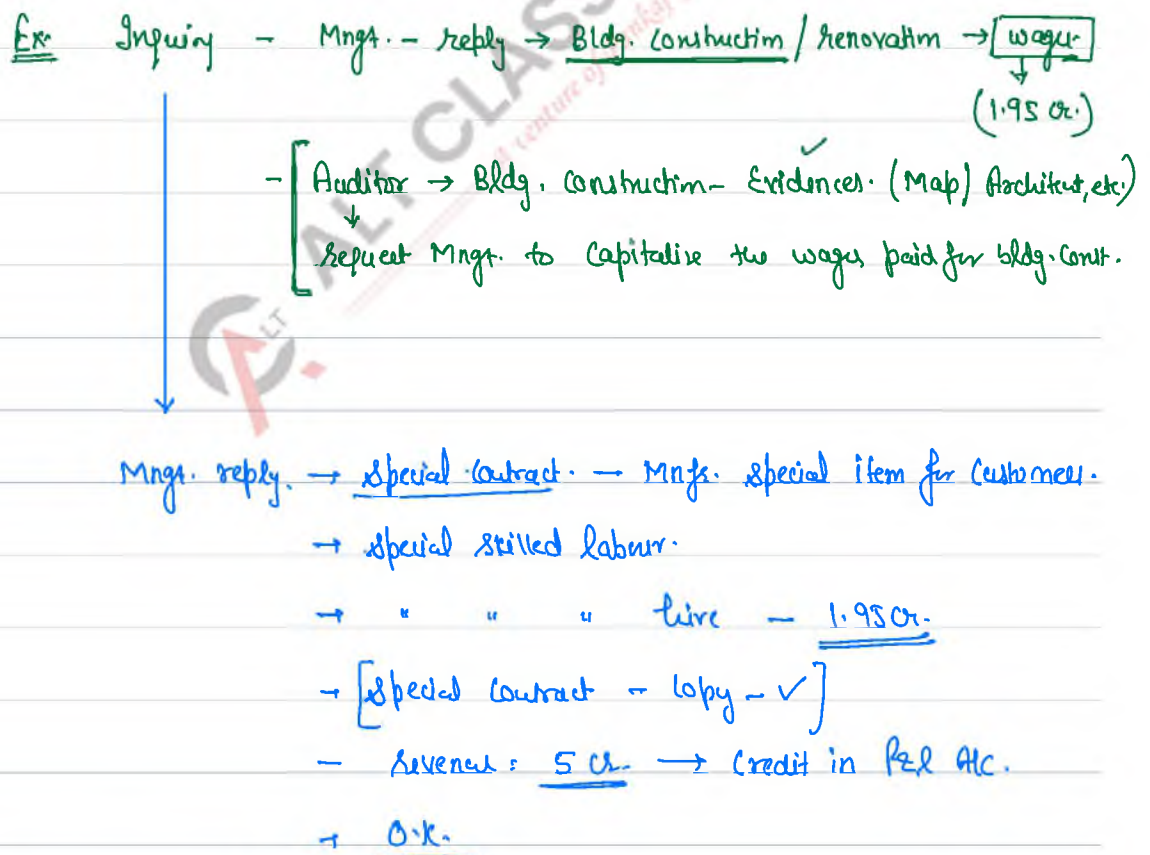 Ex. Inquiry - Mngt. - reply → Bldg. construction / renovation → wages.
(1.95 cr.)
- Auditor → Bldg. construction - Evidences. (Map) Architect, etc.)
request Mngt. to Capitalise the wages paid for bldg. const.
ALT CLASS
venture of
LT
Mngt. reply. → special contract. - Mnfr. special item for customer.
→ special skilled labour.
→ " " " hire - 1.95 cr.
→ [special contract - copy - ✓]
- revenue = 5 cr. → credit in P&L A/c.
→ O.K.